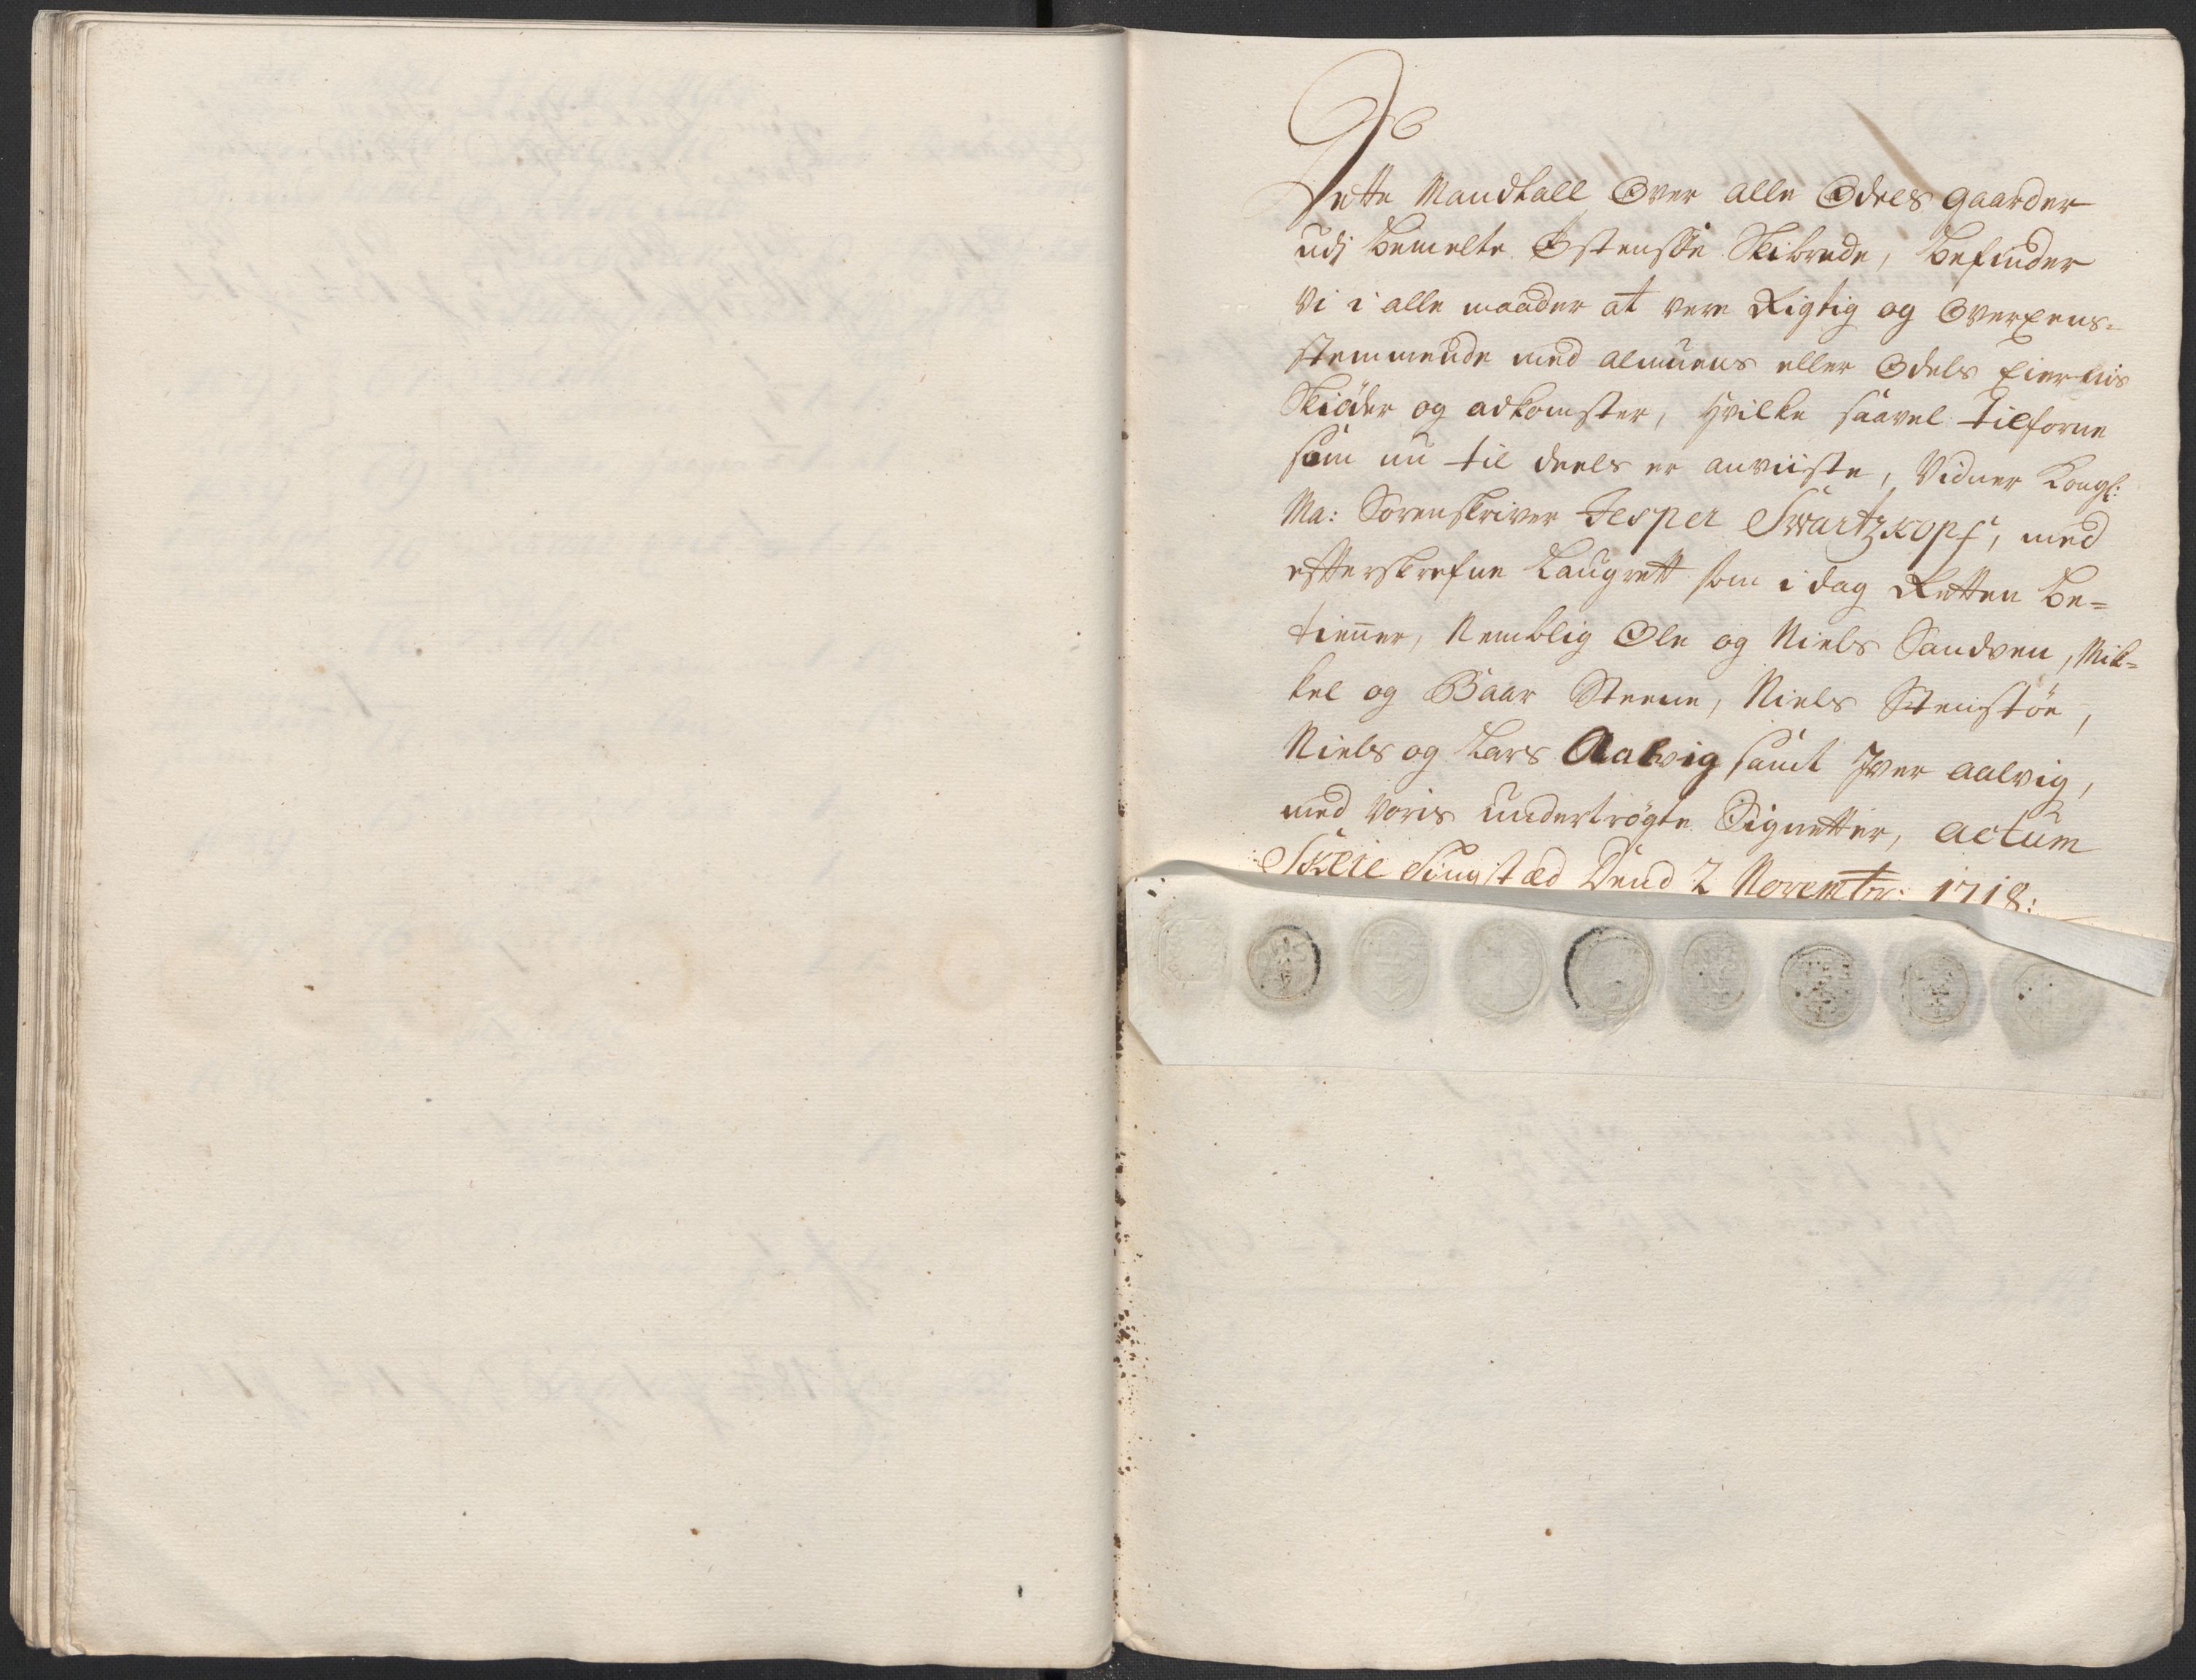 Dette Mandtall Over alle Odels gaarder
udj bemelte Østensøe Skibrede, befinder
Vi i alle maader at vere Rigtig og Overeens-
stemmende med almuens eller Odels Eiernis
Skiøder og adkomster, hvilke saavel tilforne
som nu til deels er anviiste, Vidner Kongl:
Ma: Sorenskriver Jesper Swartzkopf, med
efterskrefne Laugrett som i dag Retten be-
tienner, Nemblig Ole og Niels Sandven, Mik-
kel og Baar Steene, Niels Steinstøe,
Niels og Lars Aalvig samt Iver Aalvig,
med voris undertrøgte Signetter, Actum
Skeie Tingstæd Dend 2 Novembr: 1718: